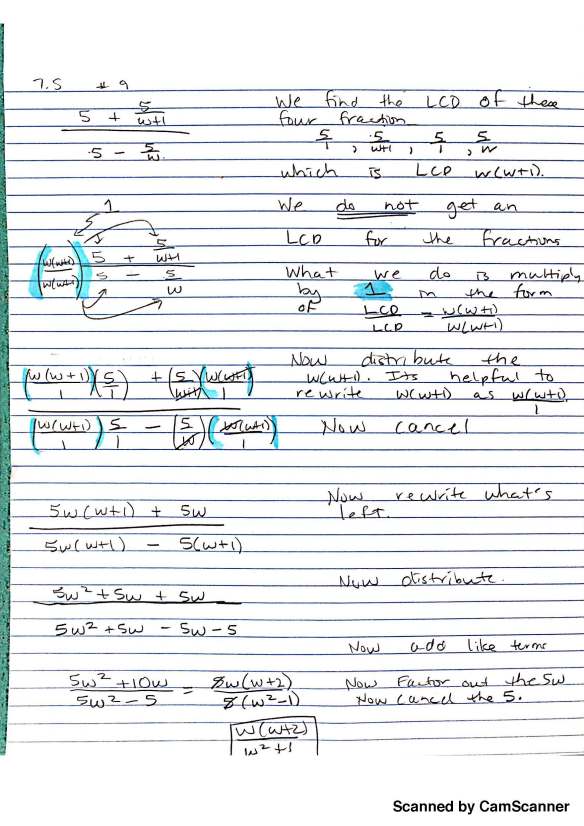 7.5 #9
5 + 5/(w+1)
5 - 5/w
We find the LCD of these
four fraction
5/1, 5/(w+1), 5/1, 5/w
which is LCD w(w+1).
We do not get an
LCD for the fractions
What we do is multiply
by 1 in the form
of LCD/LCD = w(w+1)/w(w+1)
1
(w(w+1)/w(w+1)) 5 + 5/(w+1)
5 - 5/w
Now distribute the
w(w+1). Its helpful to
rewrite w(w+1) as w(w+1)/1
Now cancel
(w(w+1)/1)(5/1) + (5/(w+1))(w(w+1)/1)
(w(w+1)/1) 5/1 - (5/w)(w(w+1)/1)
Now rewrite what's
left.
5w(w+1) + 5w
5w(w+1) - 5(w+1)
Now distribute.
5w² + 5w + 5w
5w² + 5w - 5w - 5
Now add like terms
5w² + 10w / 5w² - 5 = 5w(w+2) / 5(w² - 1)
Now Factor out the 5w
Now cancel the 5.
w(w+2)
w² + 1
Scanned by CamScanner